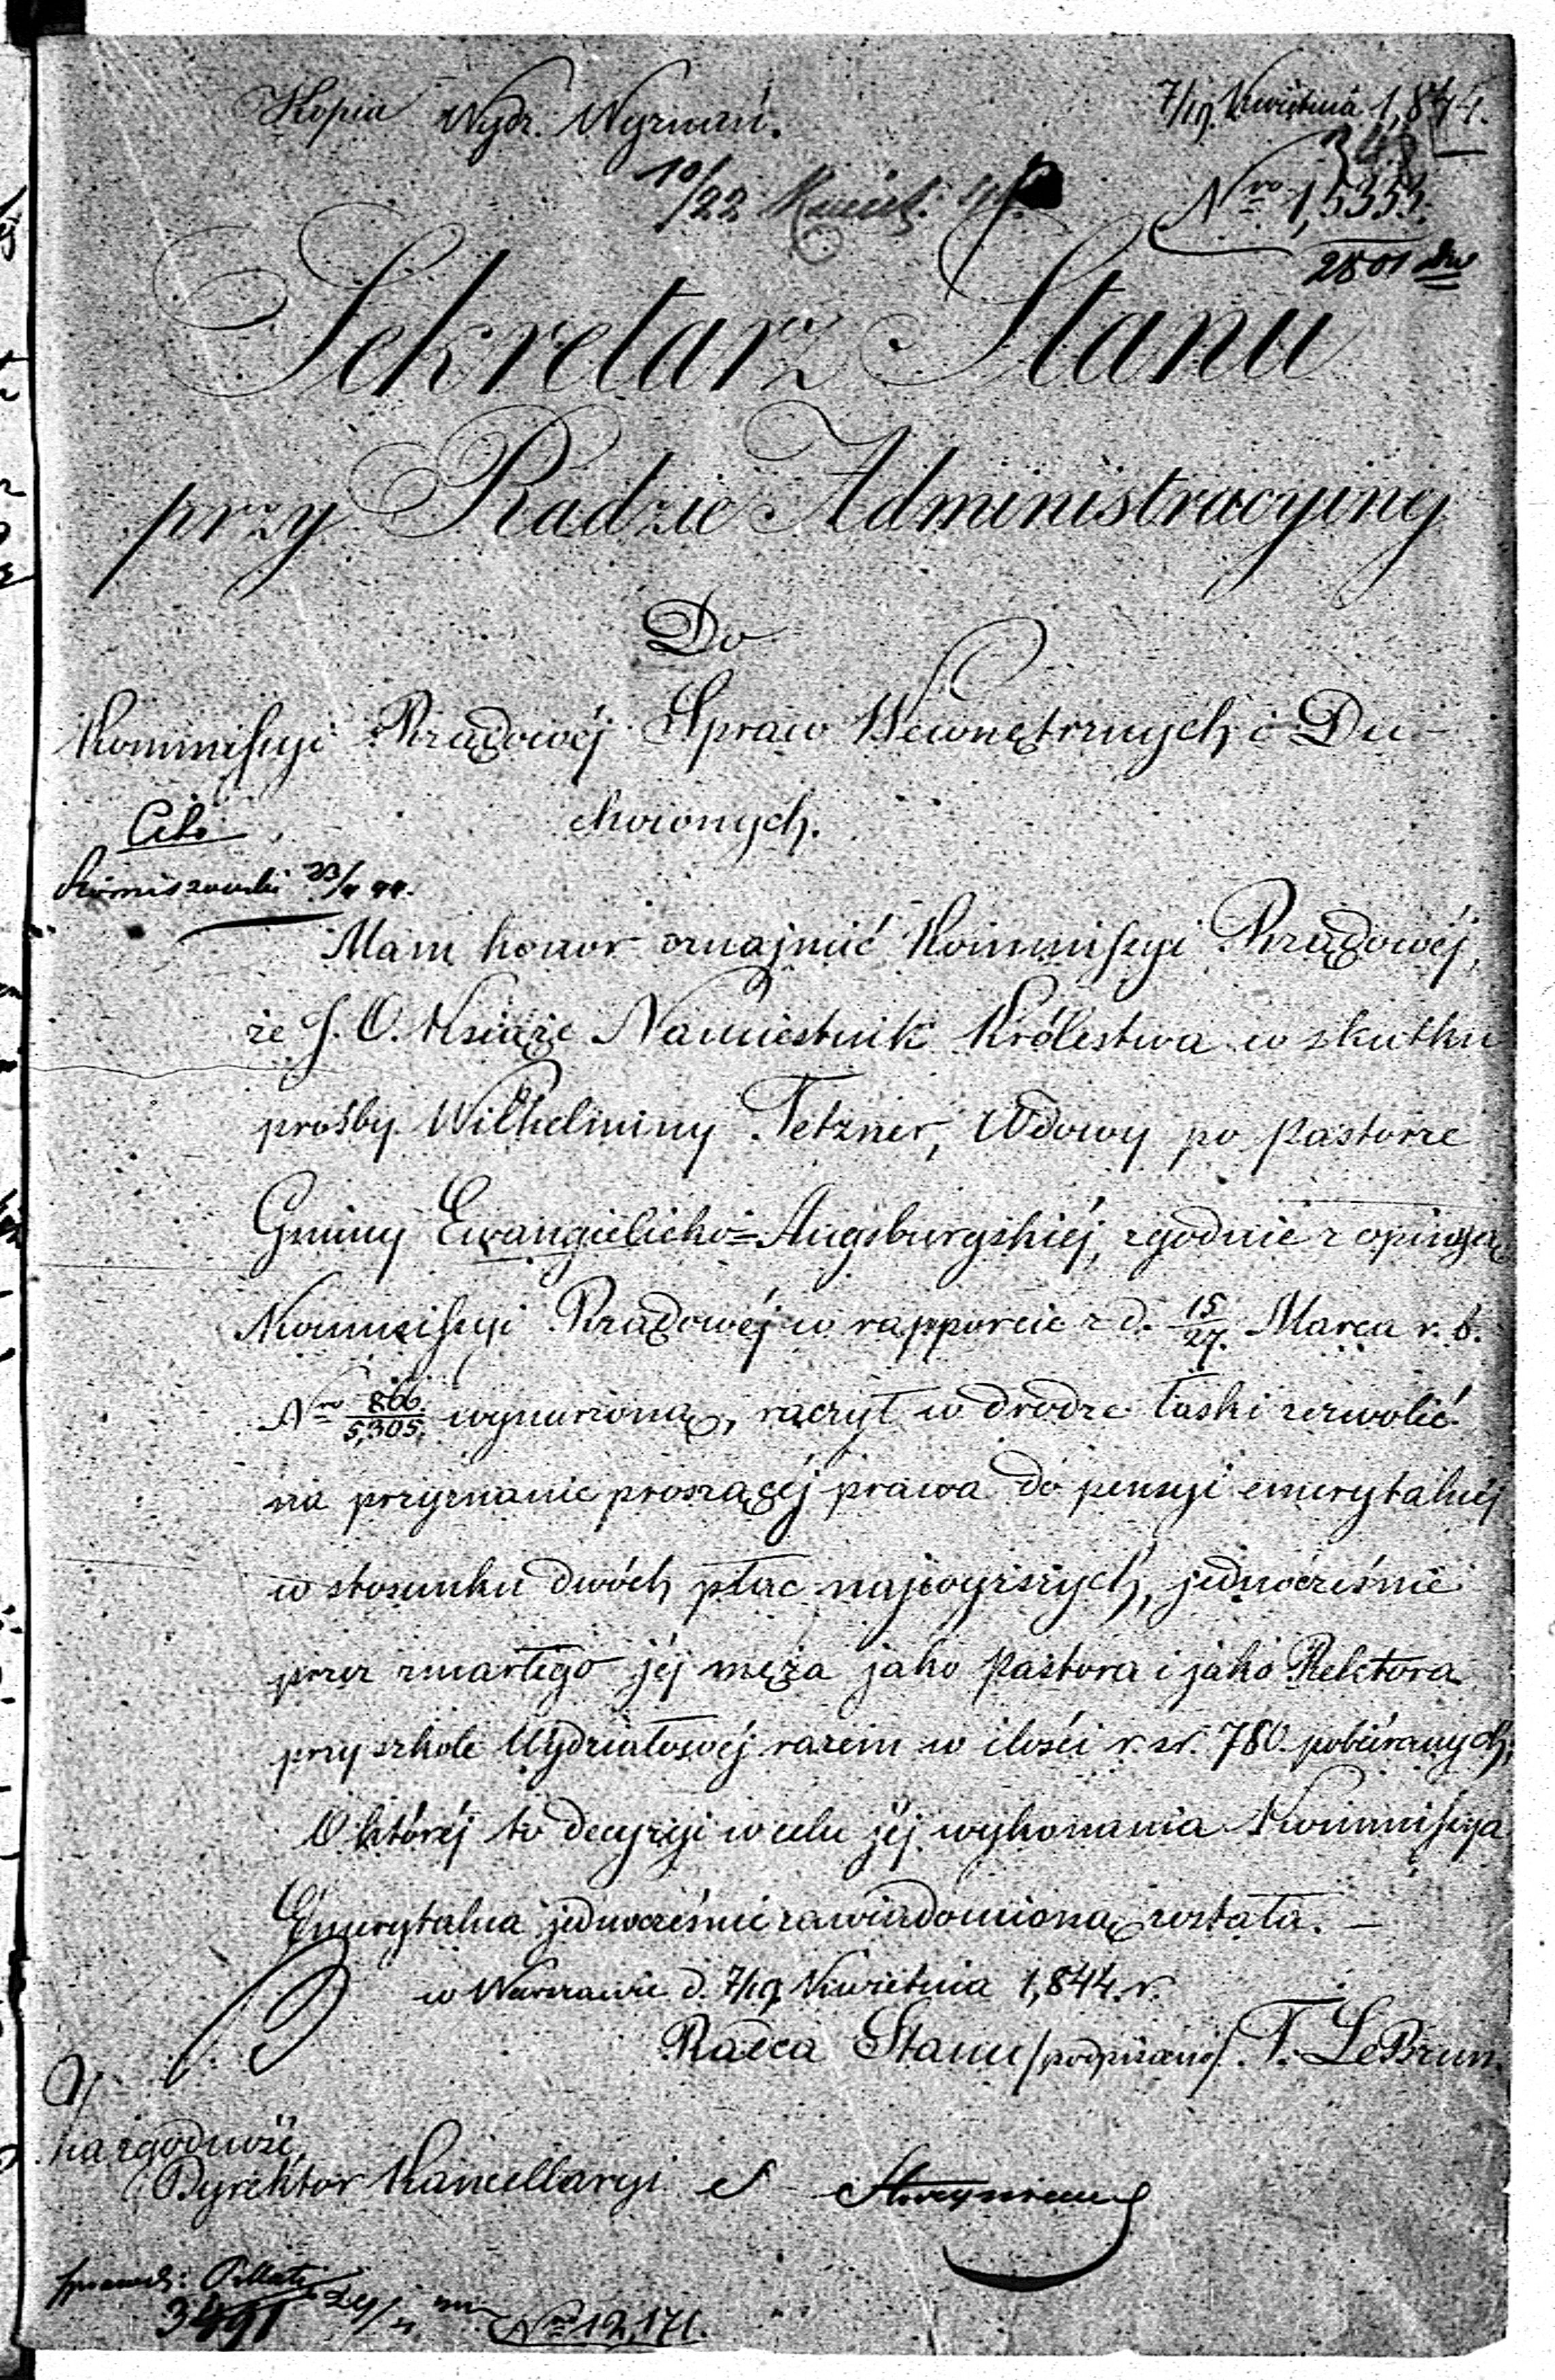 Kopia Wydz. Wyznań. 7/19. Kwietnia 1,844.
10/22 Kwiet.
Nro 1,5353.
2801
Sekretarz Stanu
przy Radzie Administracyinéj
Do
Kommissyi Rządowéj Spraw Wewnętrznych i Du-
chownych.
Cito
23/4 44.
Mam honor oznajmić Kommissyi Rządowéj,
że J. O. Książe Namiestnik Królestwa w skutku
prośby Wilhelminy Tetzner, Wdowy po Pastorze
Gminy Ewangielicko=Augsburgskiéj, zgodnie z opinją
Kommissyi Rządowéj w rapporcie z d. 15/27. Marca r. b.
Nro 866./5,305. wynurzoną, raczył w drodze łaski zezwolić
na przyznanie proszącéj prawa do pensyi emerytalnéj
w stosunku dwóch płac najwyższych, jednocześnie
przez zmarłego jéj męża jako Pastora i jako Rektora
przy szkole Wydziałowéj razem w ilości r. sr. 780. pobiéranych,
O któréj to decyzyi w celu jéj wykonania Kommissya
Emerytalna jednocześnie zawiadomioną została. –
w Warszawie d. 7/19 Kwietnia 1,844. r.
Radca Stanu /podpisano/ T. LeBrun.
Za zgodność,
Dyrektor Kancellaryi
3491 24/4 Nro 12,171.